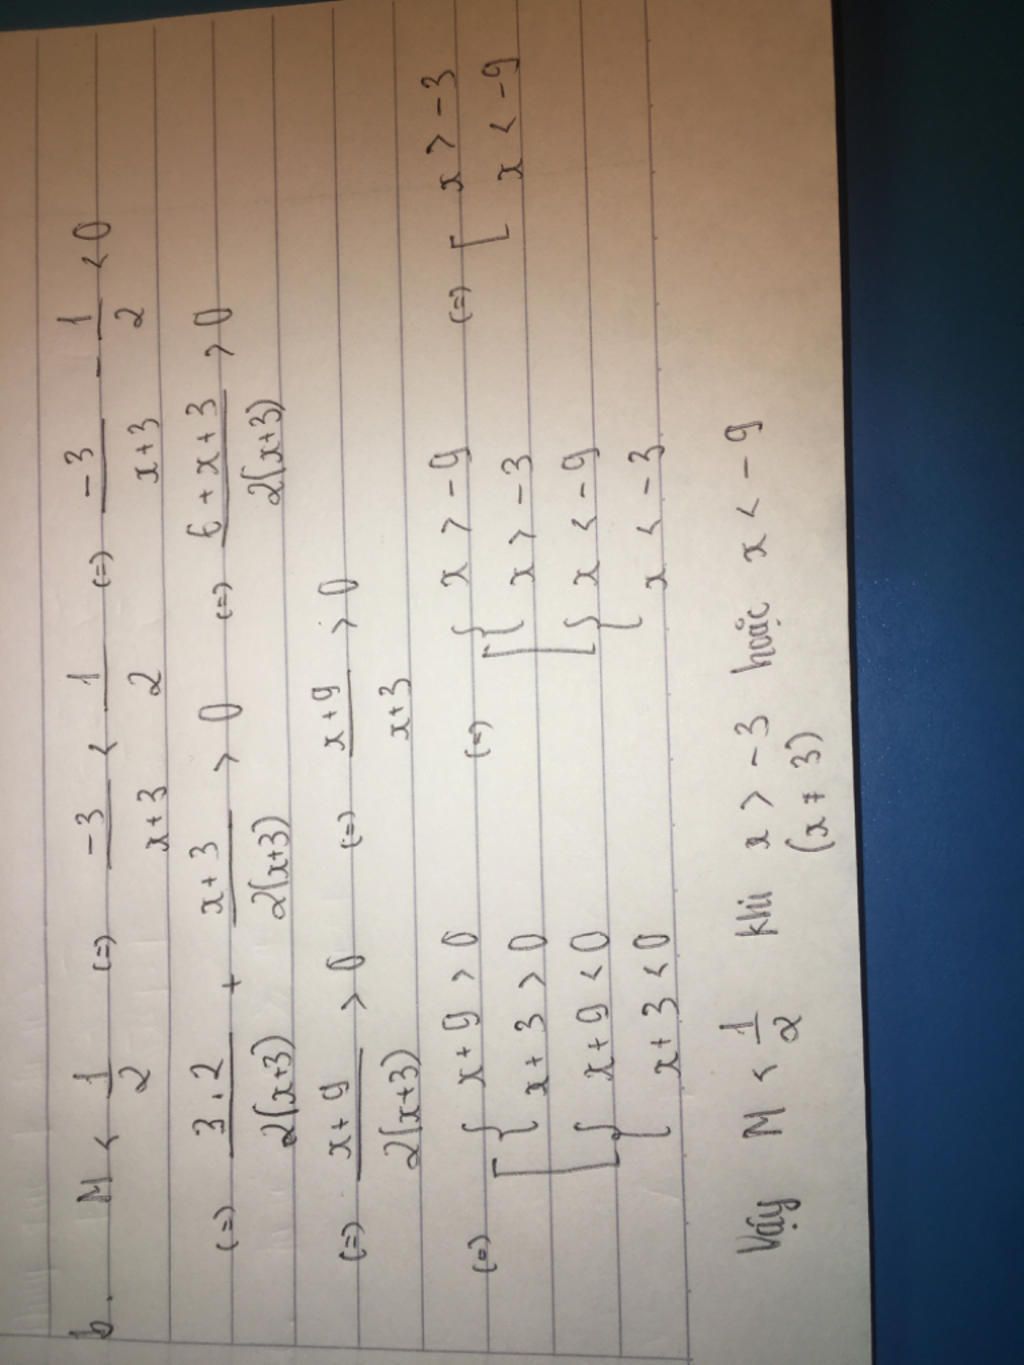 b. M < 1/2 (=) -3/(x+3) < 1/2 (=) -3/(x+3) - 1/2 < 0
(=) 3.2/2(x+3) + x+3/2(x+3) > 0 (=) 6+x+3/2(x+3) > 0
(=) x+9/2(x+3) > 0 (=) x+9/x+3 > 0
(=) [ { x+9 > 0 (=) [ { x > -9 (=) [ x > -3
x+3 > 0 x > -3 x < -9
{ x+9 < 0 { x < -9
x+3 < 0 x < -3
Vậy M < 1/2 khi x > -3 hoặc x < -9
(x ≠ 3)